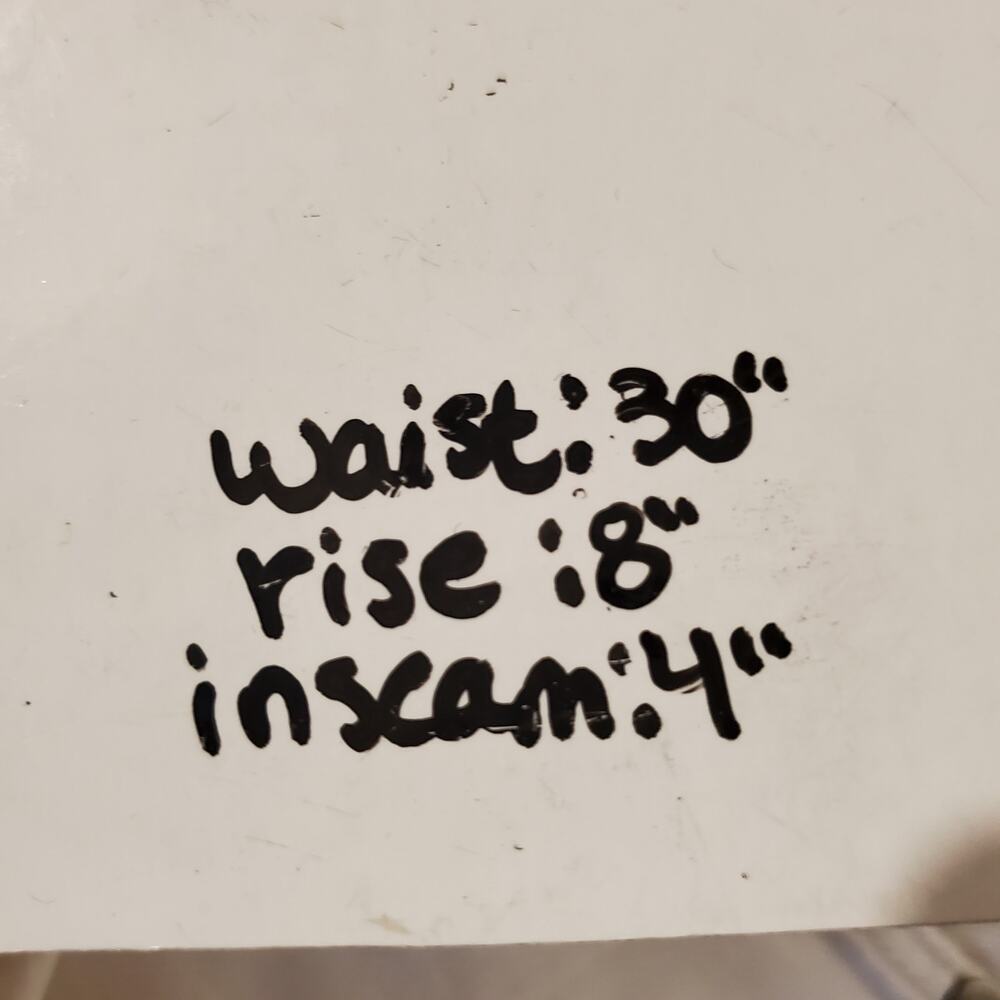 waist: 30"
rise : 8"
inseam: 4"